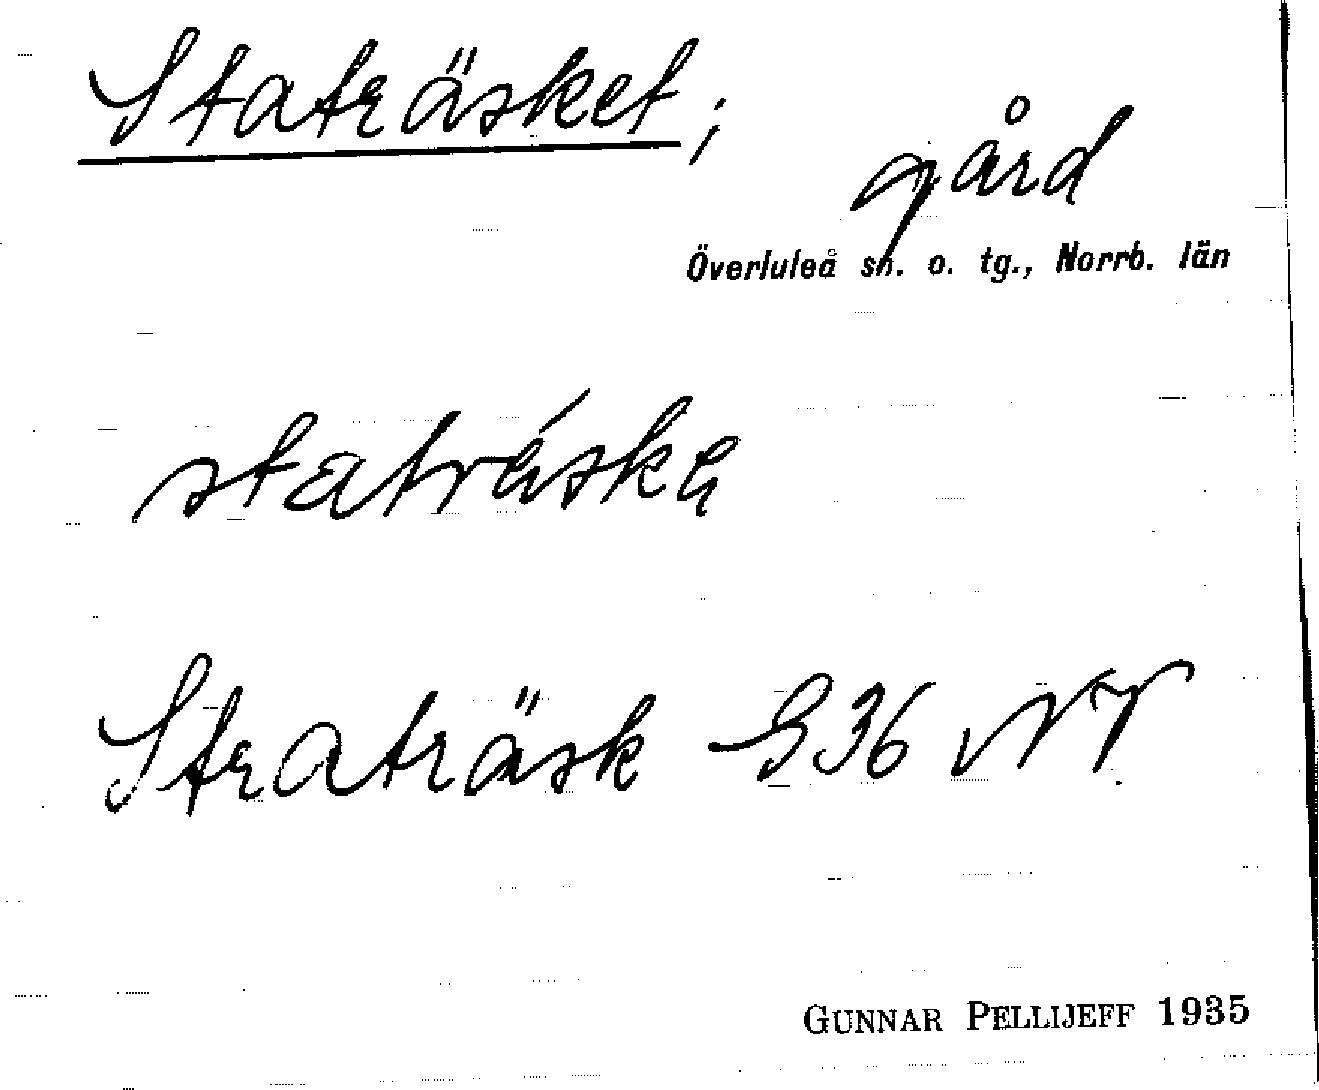 Staträsket;
gård
Överluleå sn. o. tg., Norrb. län
staträske
Straträsk G36 NV
GUNNAR PELLIJEFF 1935